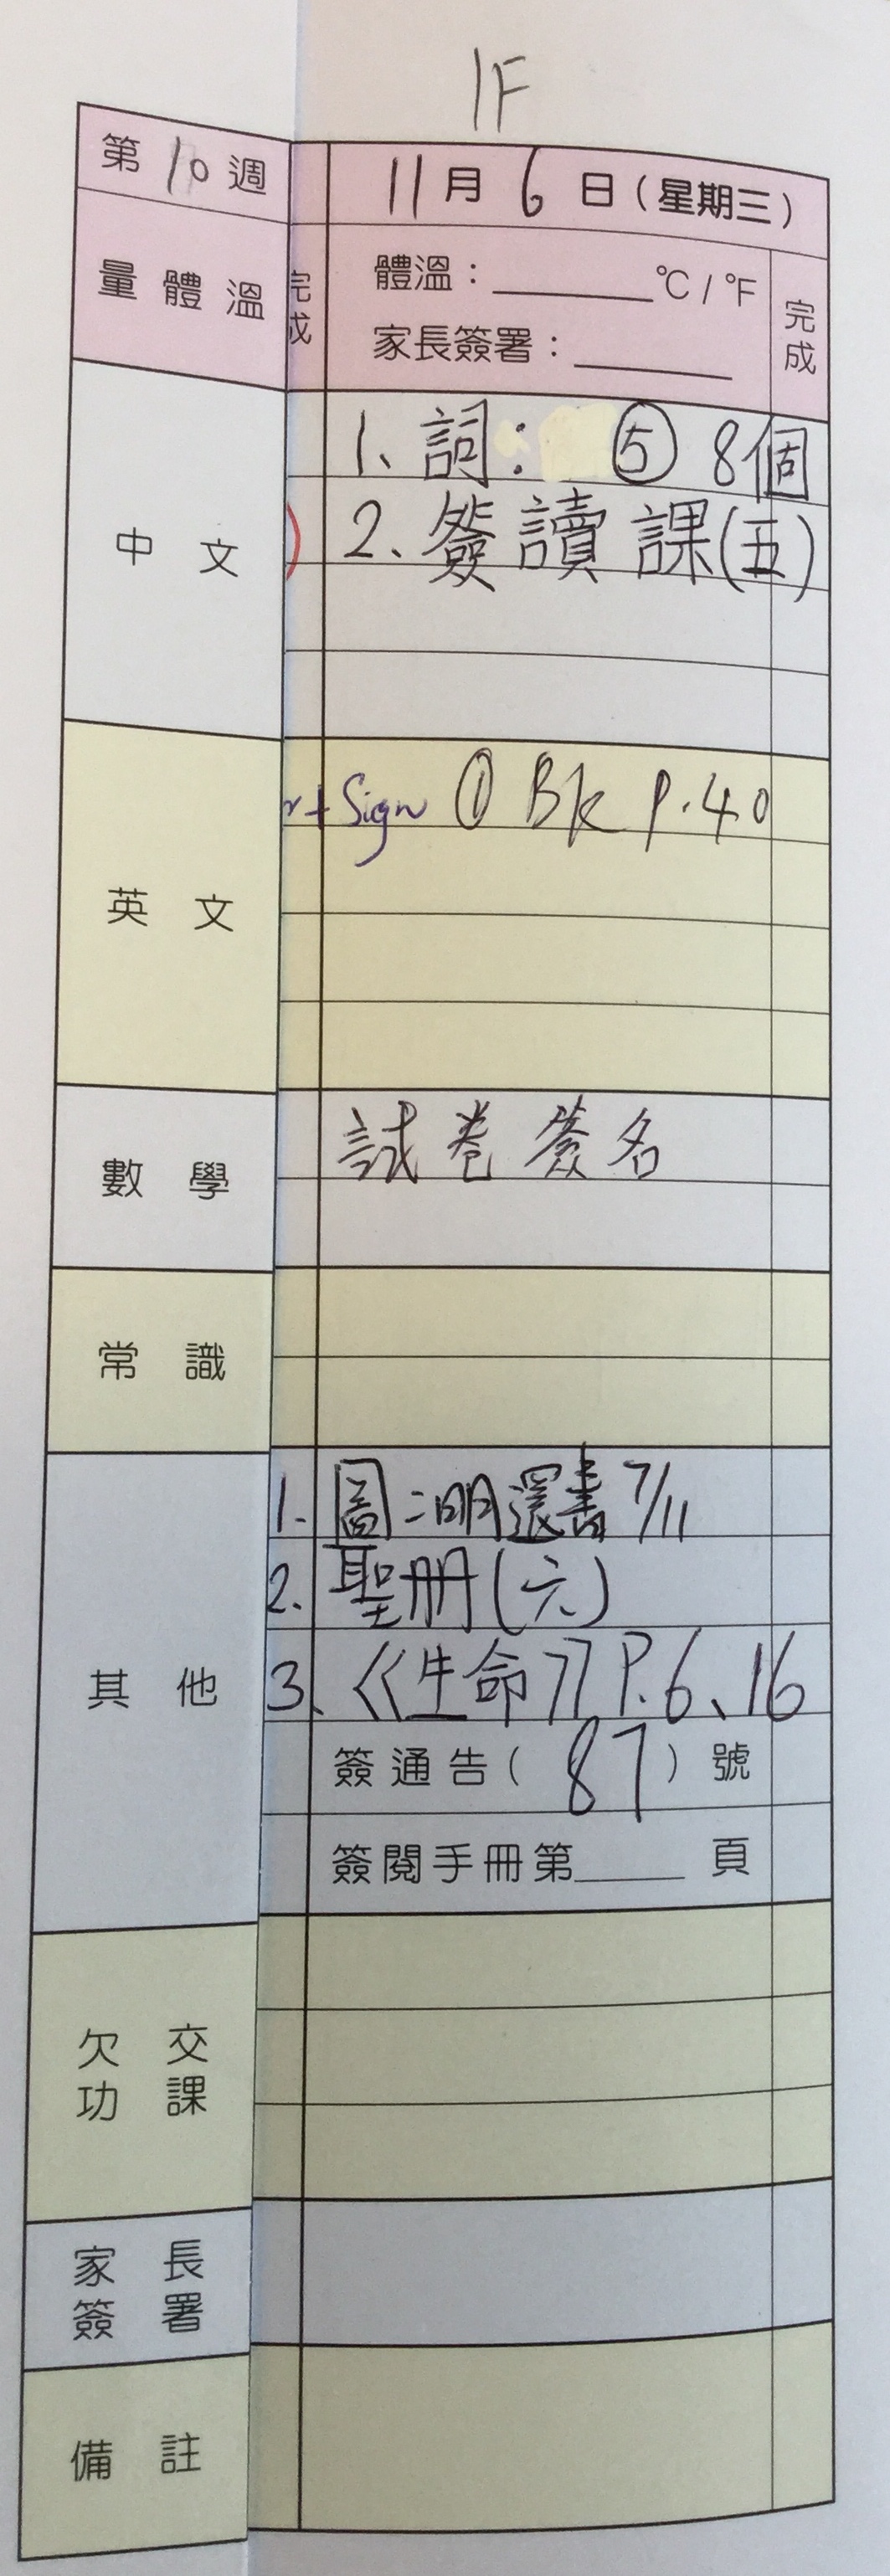 1F
第10週
11月6日(星期三)
量體溫
完成
體溫：______°C / °F
家長簽署：______
完成
中文
1、詞： ⑤ 8個
) 2、簽讀課(五)
英文
+ Sign ① Bk P.40
數學
試卷簽名
常識
其他
1. 圖：明還書 7/11
2. 聖冊(六)
3、《生命》P.6、16
簽通告(87)號
簽閱手冊第______頁
欠交
功課
家長
簽署
備註